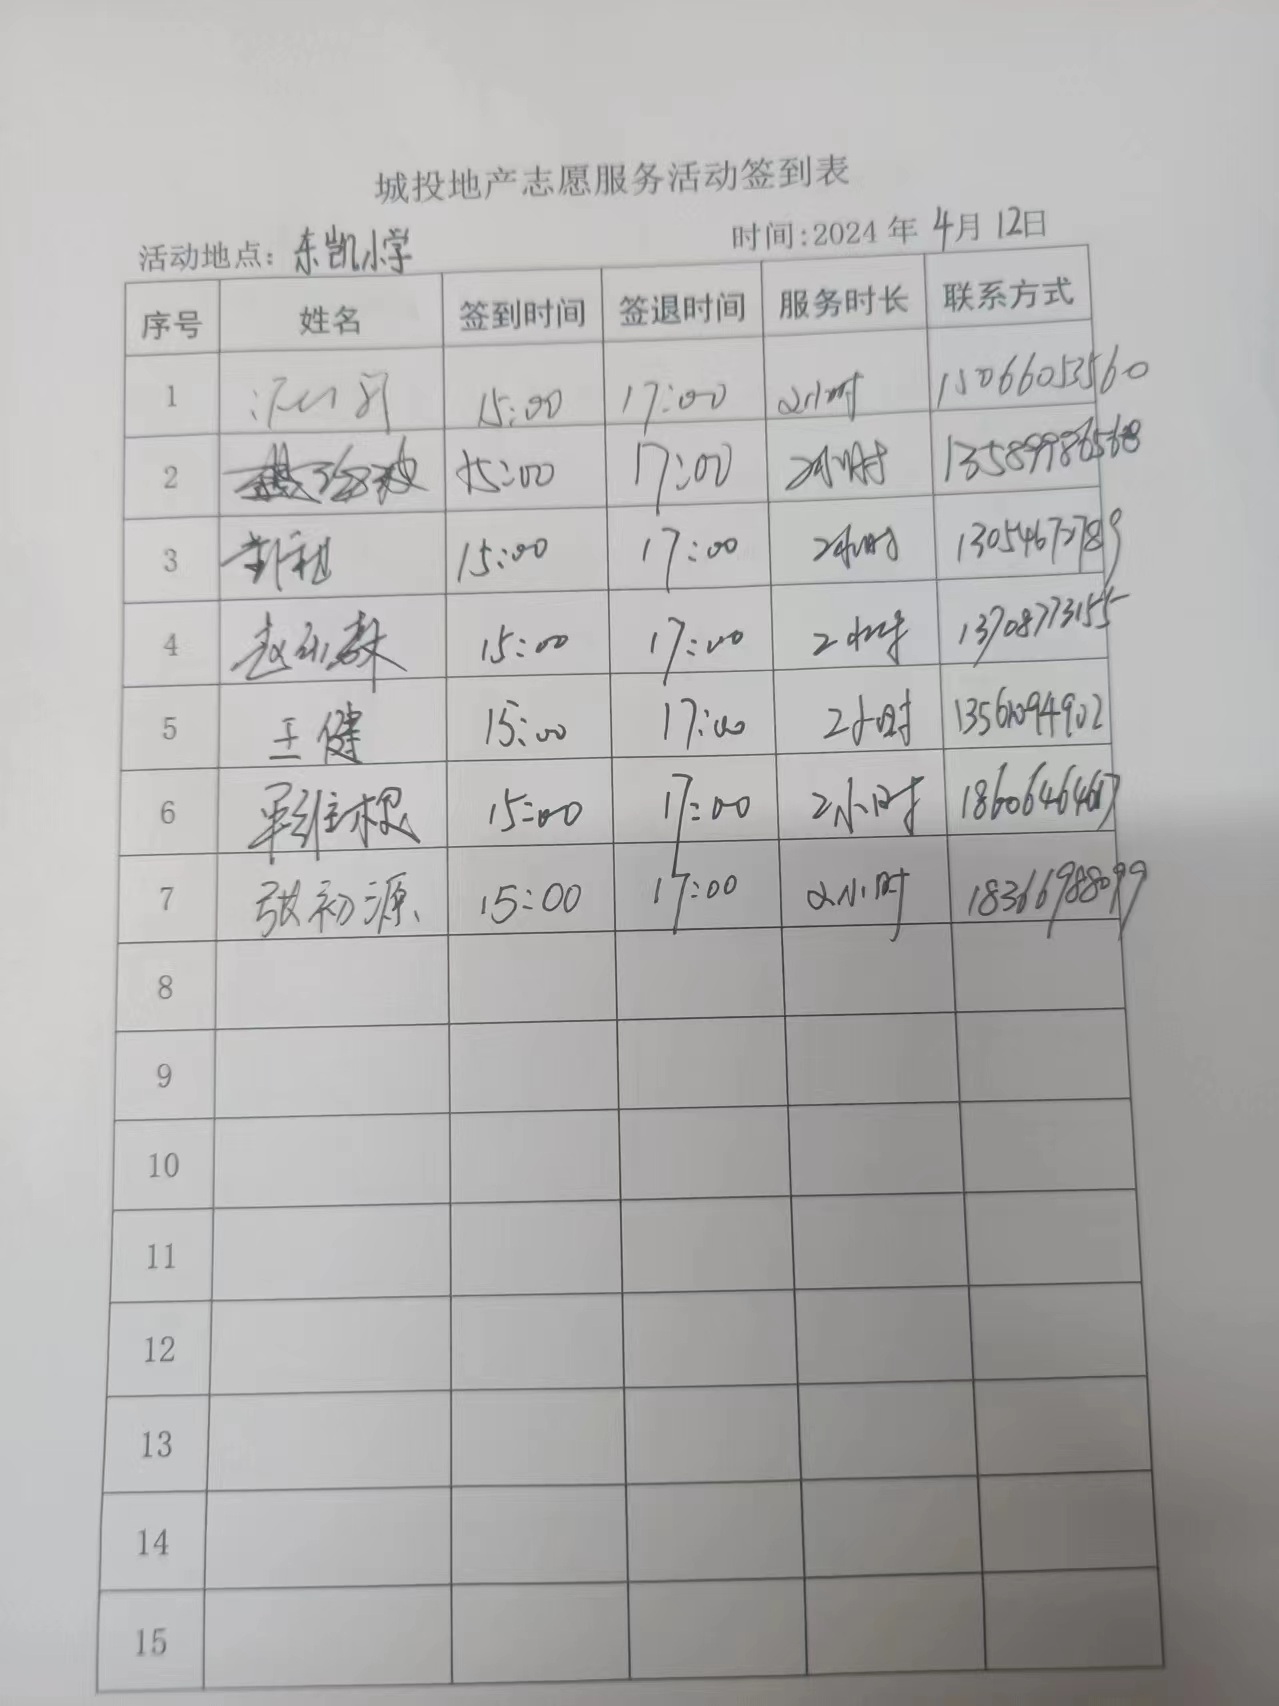 城投地产志愿服务活动签到表
活动地点: 东凯小学 时间:2024 年 4月 12日
序号 姓名 签到时间 签退时间 服务时长 联系方式
1 15:00 17:00 2小时 15066053560
2 15:00 17:00 2小时 13589986568
3 15:00 17:00 2小时 13054672789
4 15:00 17:00 2小时 13708773155
5 王健 15:00 17:00 2小时 13561094902
6 15:00 17:00 2小时
7 张初源 15:00 17:00 2小时 18366988099
8
9
10
11
12
13
14
15